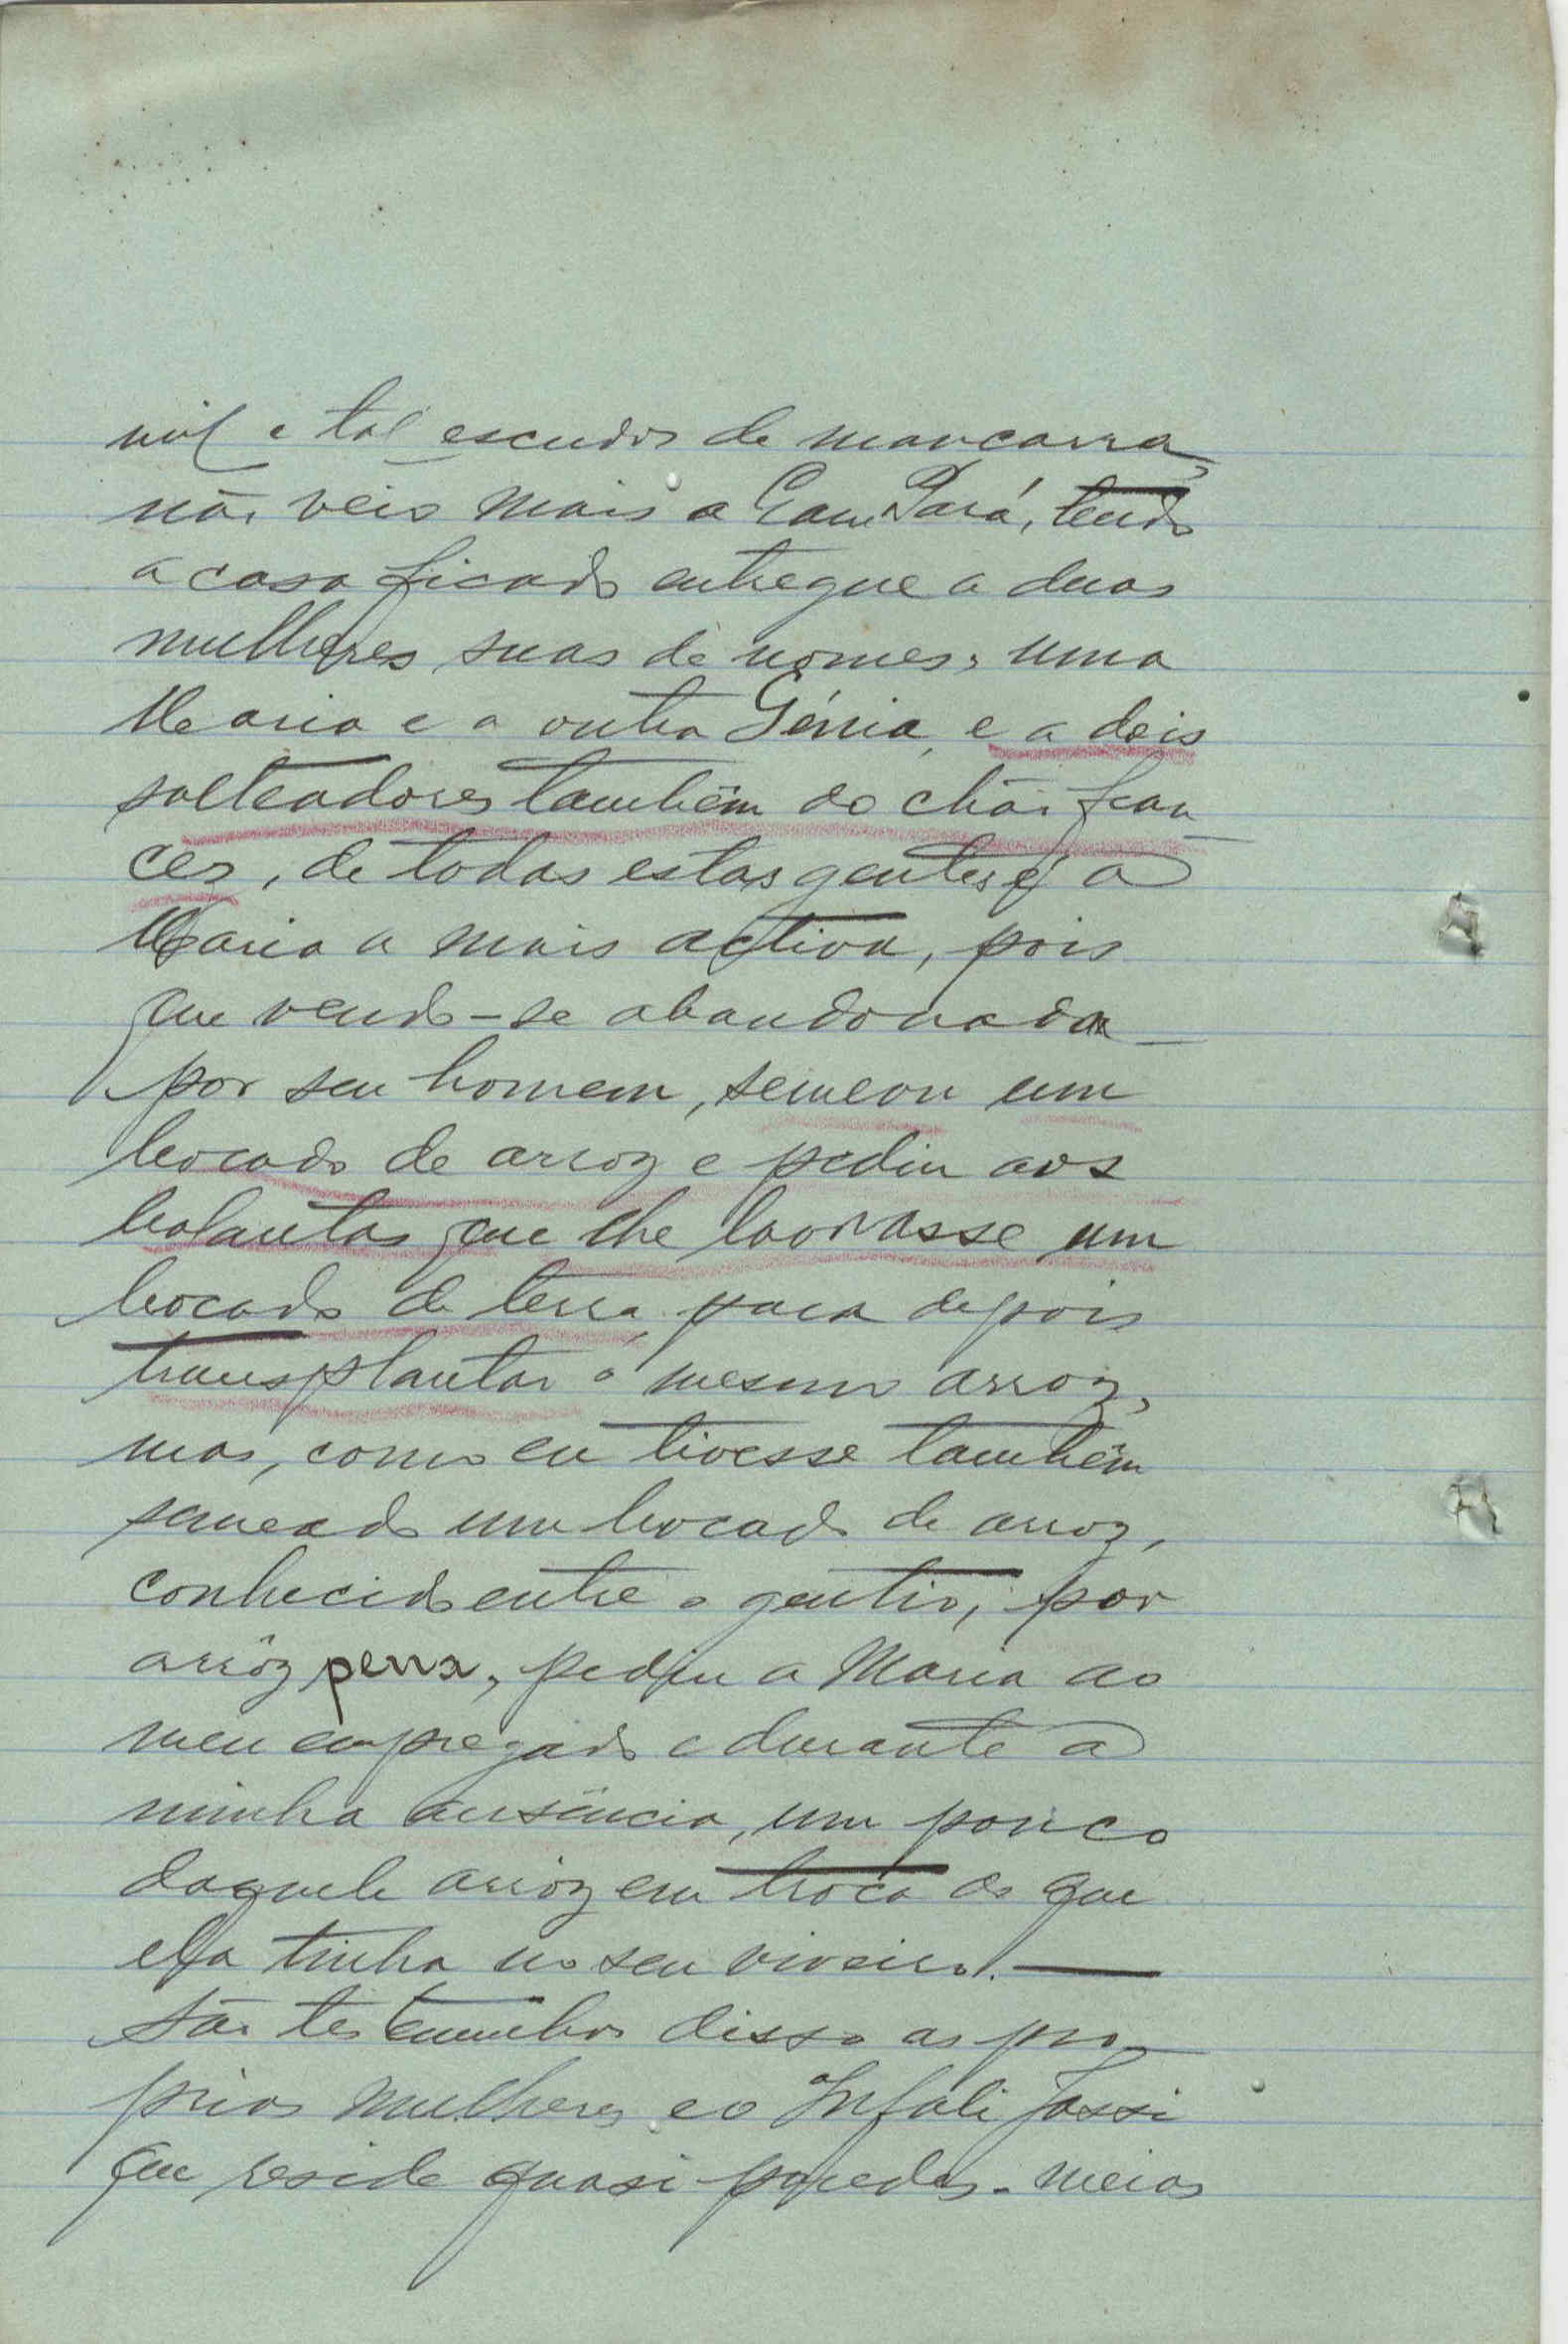 mil e tal escudos de mancarra,
não veio mais a Gam Pará, tendo
a casa ficado entregue a duas
mulheres suas de nomes, uma
Maria e a outra Génia, e a dois
salteadores também do chão fran
cez, de todas estas gentes é a
Maria a mais activa, pois
que vendo-se abandonada
por seu homem, semeou um
bocado de arroz e pediu aos
balantas que lhe lavrasse um
bocado de terra, para depois
transplantar o mesmo arroz,
mas, como eu tivesse também
semeado um bocado de arroz,
conhecido entre o gentio, por
arrôz, pediu a Maria ao
meu empregado e durante a
minha ausência, um pouco
daquele arroz em troca do que
ela tinha no seu viveiro. —
São testemunhos disso as pro
prias mulheres e o Infali Jassi
que reside quasi paredes-meias